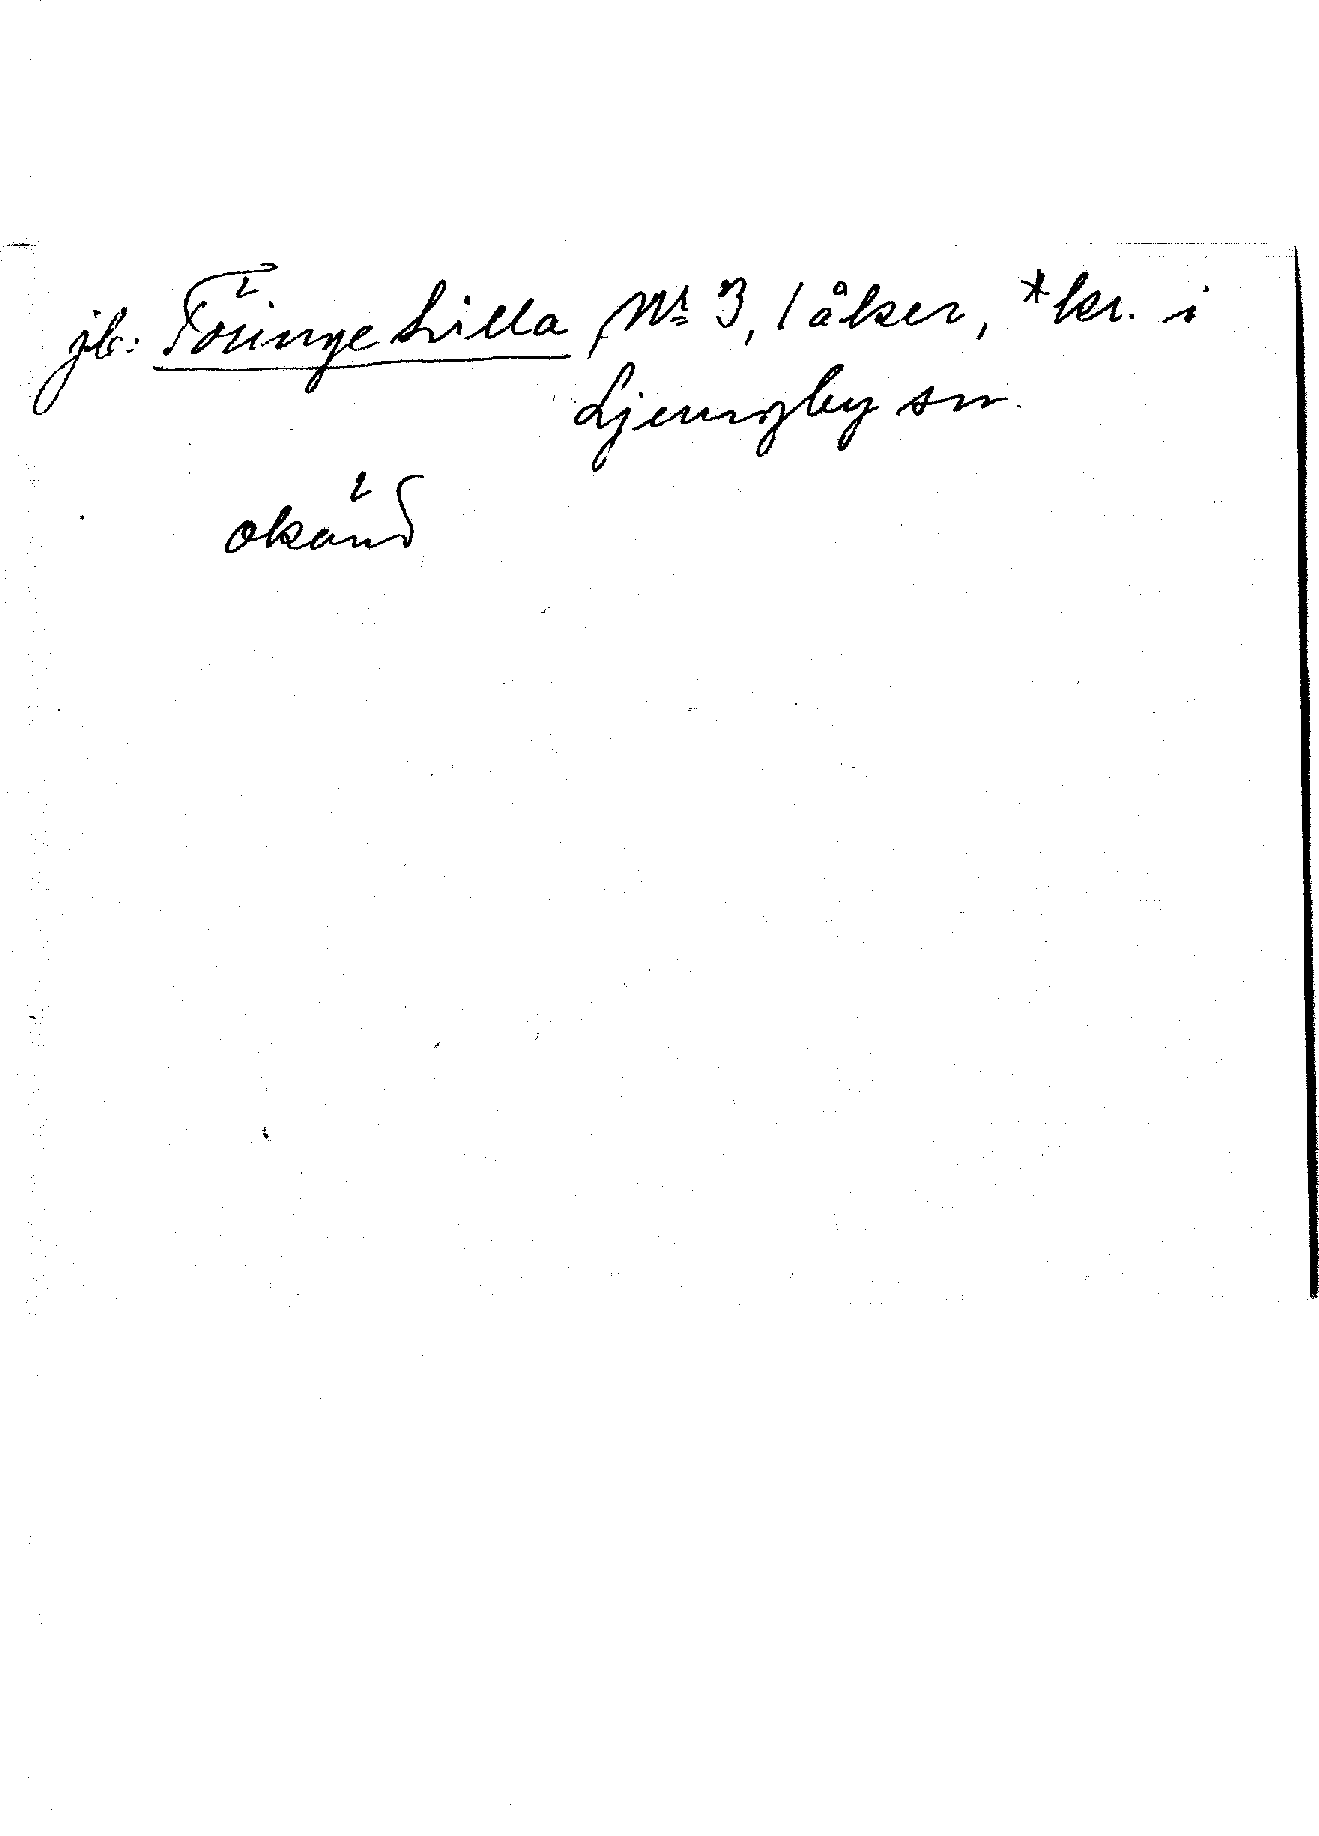 jb: Töringe Lilla Nr 3, 1 åker, *kr. i
Ljungby sn.
okänd